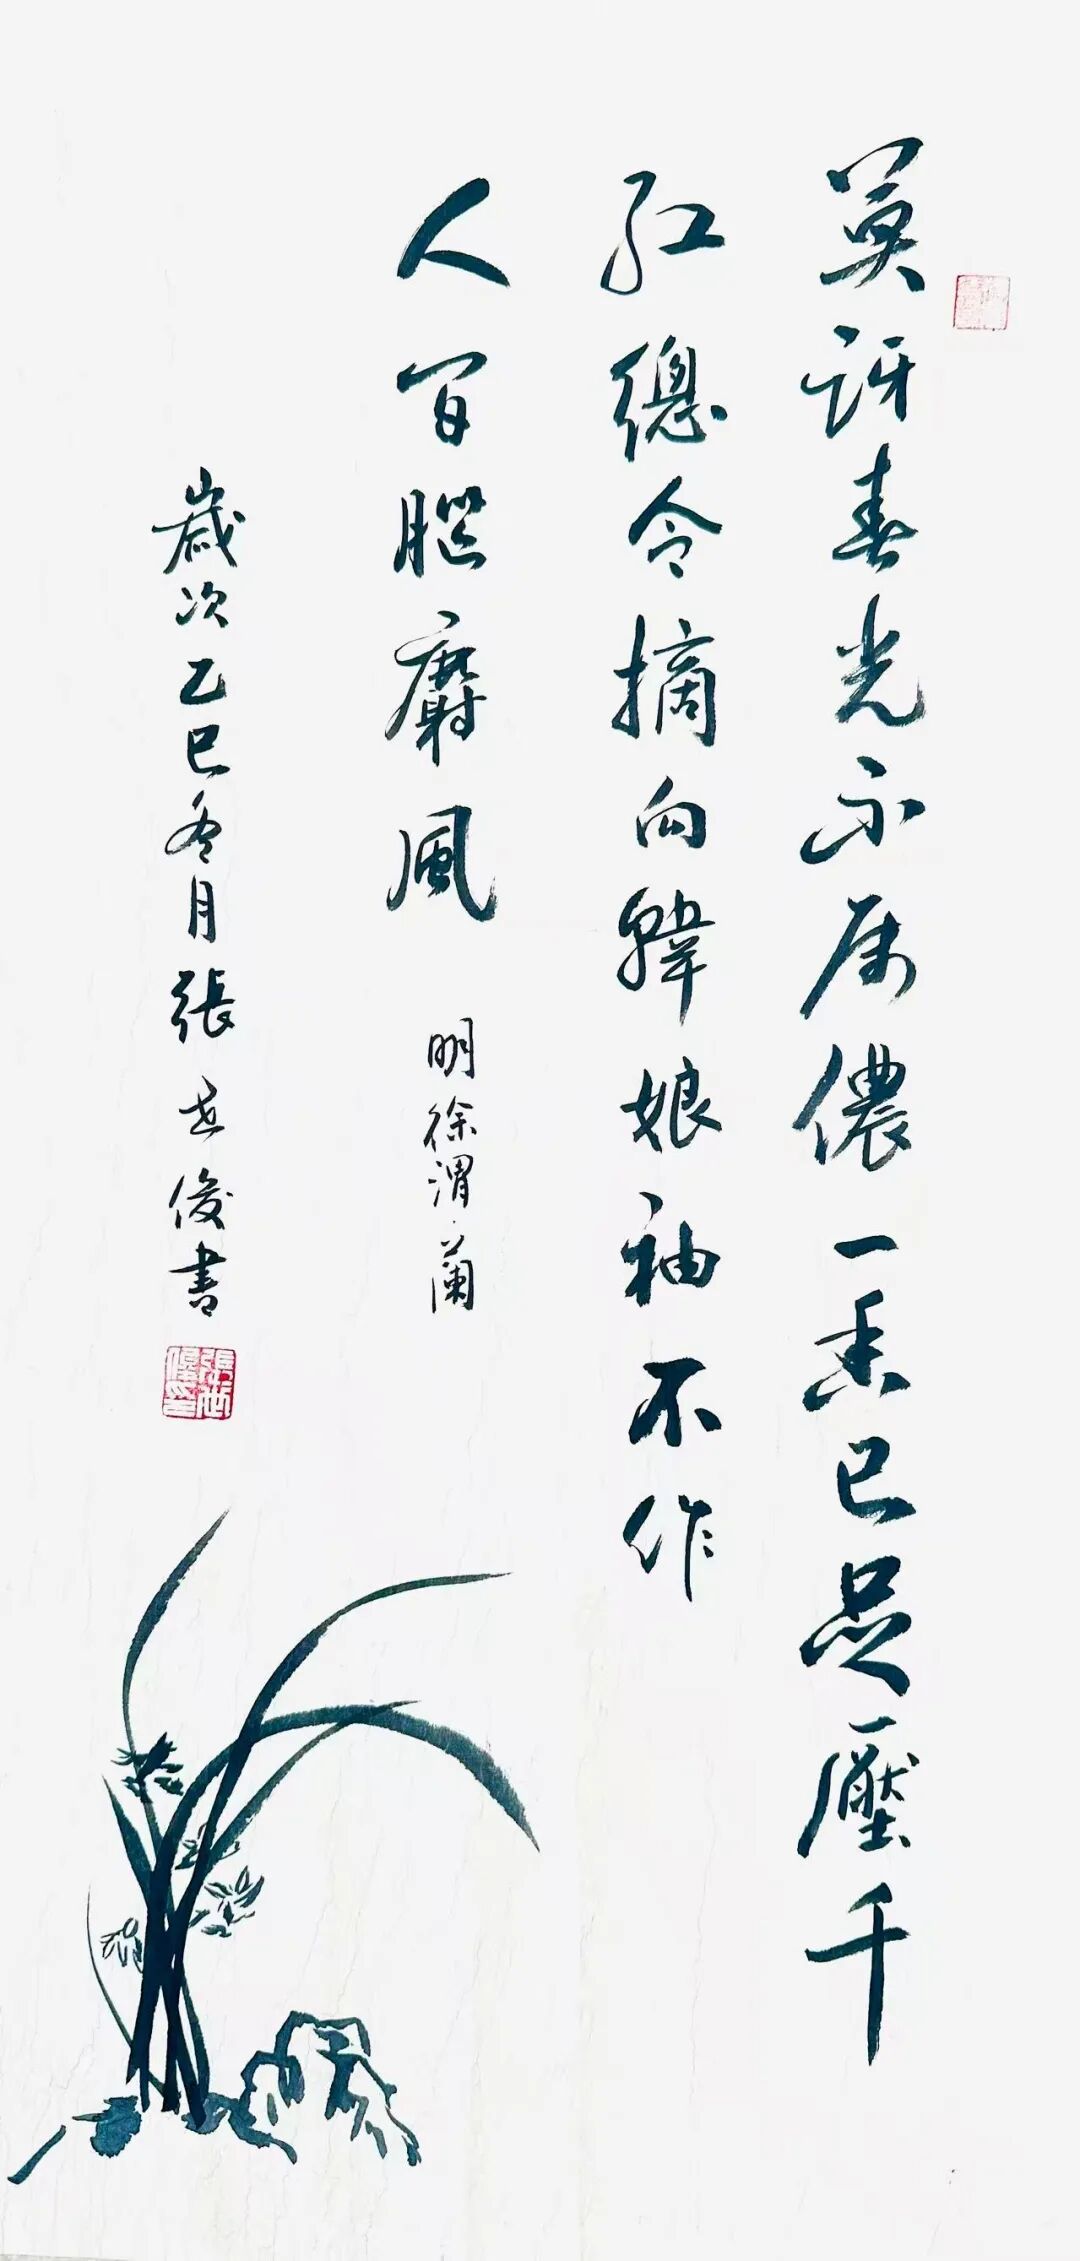 莫訝春光不属儂一香已足壓千
紅總令摘向韓娘袖不作
人間腦麝風
明徐渭蘭
歲次乙巳冬月張世俊書
張世俊印